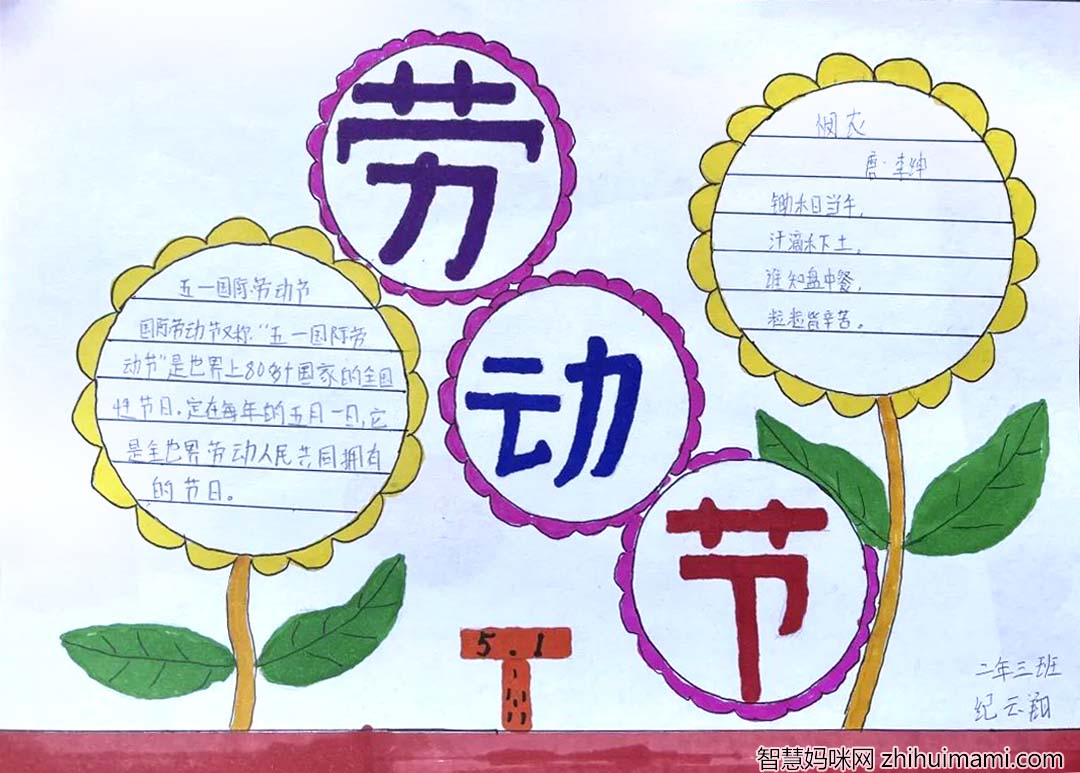 劳
动
节
五一国际劳动节
国际劳动节又称“五一国际劳
动节”是世界上80多个国家的全国
性节日。定在每年的五月一日,它
是全世界劳动人民共同拥有
的节日。
悯农
唐·李绅
锄禾日当午,
汗滴禾下土,
谁知盘中餐,
粒粒皆辛苦。
5.1
二年三班
纪云翔
智慧妈咪网 zhihuimami.com